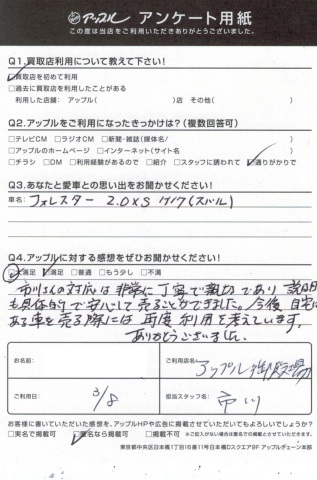 アップル アンケート用紙
この度は当店をご利用いただきありがとうございました。
Q1.買取店利用について教えて下さい!
☑買取店を初めて利用
□過去に買取店を利用したことがある
利用した店舗: アップル( )店 その他( )
Q2.アップルをご利用になったきっかけは?(複数回答可)
□テレビCM □ラジオCM □新聞・雑誌(媒体名/ )
□アップルのホームページ □インターネット(サイト名 )
□チラシ □DM □利用経験があるので □紹介 □スタッフに誘われて ☑通りがかりで
Q3.あなたと愛車との思い出をお聞かせください!
車名: フォレスター 2.0XS (スバル)
Q4.アップルに対する感想をぜひお聞かせください!
大満足 ☑満足 □普通 □もう少し □不満
市川さんの対応は非常に丁寧で親切であり 説明
も具体的で安心して売ることができました。今後 自宅に
ある車を売る際には 再度 利用を考えています。
ありがとうございました。
お名前:
ご利用店名:
アップル御殿場
ご利用日: 3/8
担当スタッフ名: 市川
お客様に書いていただいた感想を、アップルHPや広告に掲載させていただいてもよろしいでしょうか?
□実名で掲載可 ☑匿名なら掲載可 ※ご記入がない場合は匿名での掲載とさせていただきます。
東京都中央区日本橋1丁目16番11号日本橋Dスクエア9F アップルチェーン本部